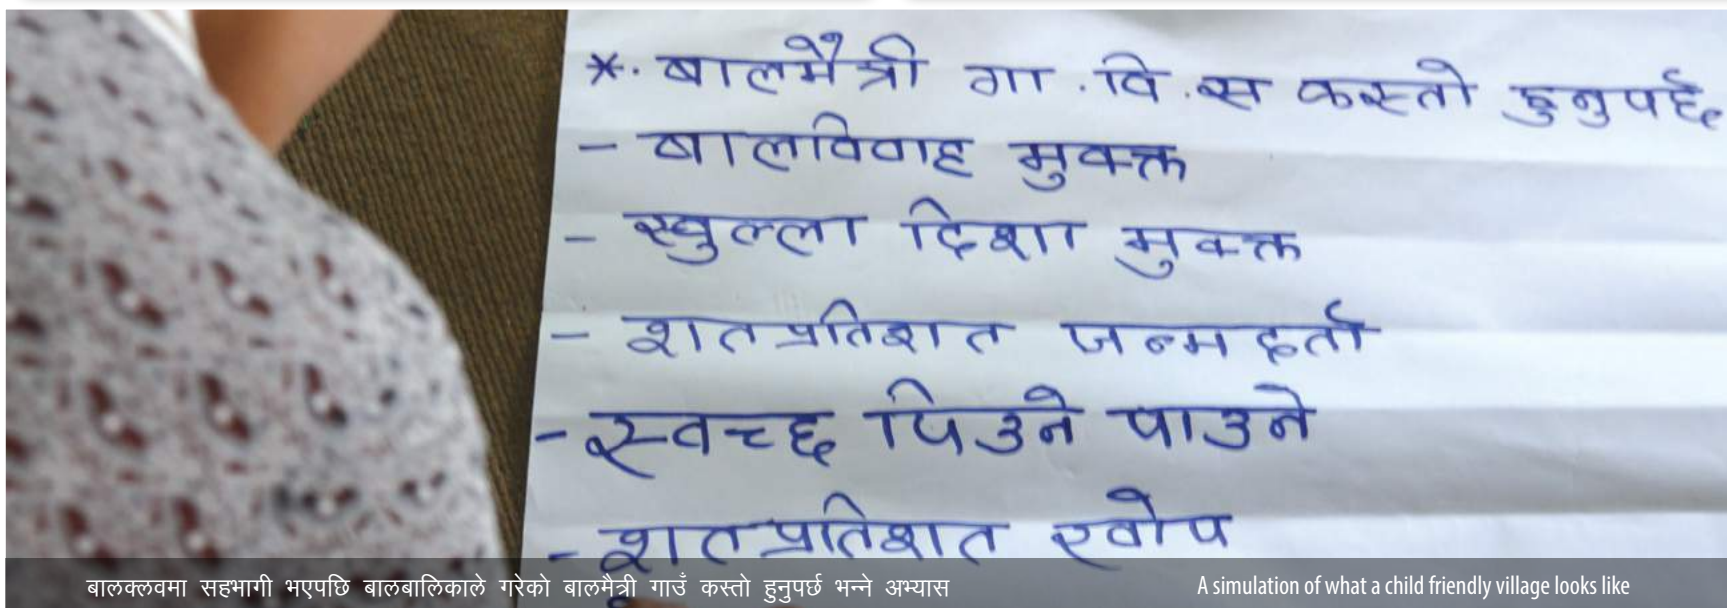 *. बालमैत्री गा . वि . स कस्तो हुनुपर्छ
- बालविवाह मुक्त
- खुल्ला दिशा मुक्त
- शतप्रतिशत जन्मदर्ता
- स्वच्छ पिउने पाउने
- शतप्रतिशत खोप
बालक्लवमा सहभागी भएपछि बालबालिकाले गरेको बालमैत्री गाउँ कस्तो हुनुपर्छ भन्ने अभ्यास
A simulation of what a child friendly village looks like